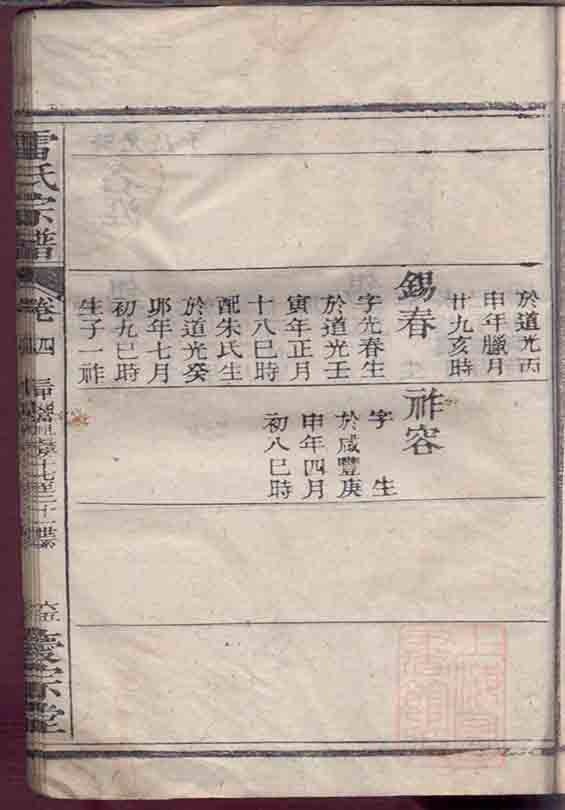 於道光丙
申年臘月
廿九亥時
錫春
字光春生
於道光壬
寅年正月
十八巳時
配朱氏生
於道光癸
卯年七月
初九巳時
生子一祚
祚容
字 生
於咸豐庚
申年四月
初八巳時
雷氏宗譜
卷四
六五